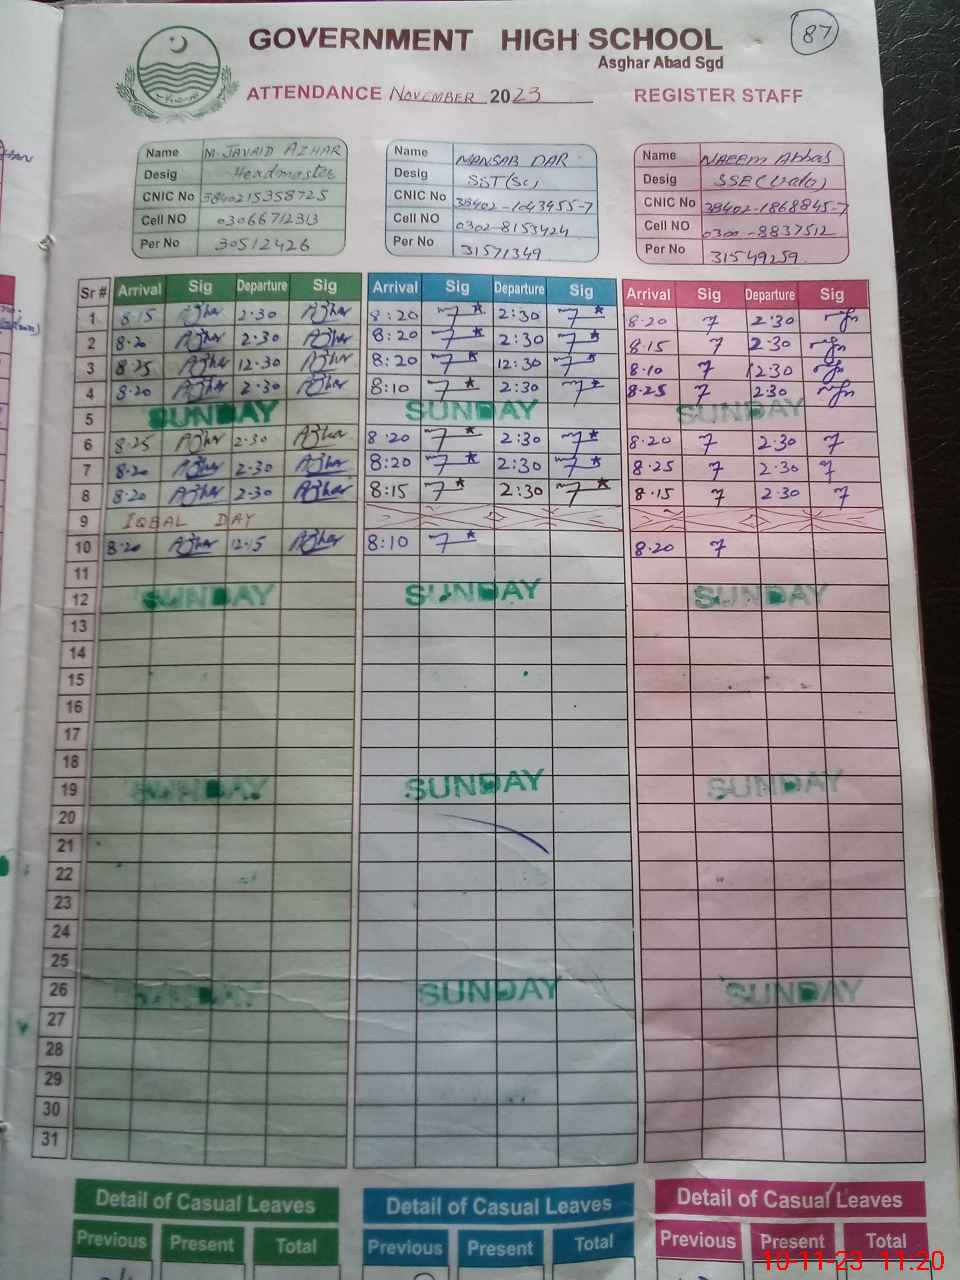 GOVERNMENT HIGH SCHOOL
87
Asghar Abad Sgd
ATTENDANCE NOVEMBER 2023 REGISTER STAFF
Name M. JAVAID AZHAR
Desig Headmaster
CNIC No 3840215358725
Cell NO 03066712313
Per No 30512426
Name MANSAB DAR
Desig SST(Sc)
CNIC No 38402-1043955-7
Cell NO 0302-8153424
Per No 31571349
Name NAEEM Abbas
Desig SSE
CNIC No 38402-1868845-7
Cell NO 0300-8837512
Per No 31549259
Sr # Arrival Sig Departure Sig Arrival Sig Departure Sig Arrival Sig Departure Sig
1 8-15 Azhar 2-30 Azhar 8:20 2:30 8-20 2-30
2 8-20 Azhar 2-30 Azhar 8:20 2:30 8-15 2-30
3 8-25 Azhar 12-30 Azhar 8:20 12:30 8-10 12-30
4 8-20 Azhar 2-30 Azhar 8:10 2:30 8-25 2-30
5 SUNDAY SUNDAY SUNDAY
6 8-25 Azhar 2-30 Azhar 8:20 2:30 8-20 2-30
7 8-20 Azhar 2-30 Azhar 8:20 2:30 8-25 2-30
8 8-20 Azhar 2-30 Azhar 8:15 2:30 8-15 2-30
9 IQBAL DAY
10 8-20 Azhar 12-15 Azhar 8:10 8-20
11
12 SUNDAY SUNDAY SUNDAY
13
14
15
16
17
18
19 SUNDAY SUNDAY SUNDAY
20
21
22
23
24
25
26 SUNDAY SUNDAY SUNDAY
27
28
29
30
31
Detail of Casual Leaves Detail of Casual Leaves Detail of Casual Leaves
Previous Present Total Previous Present Total Previous Present Total
10-11-23 11:20